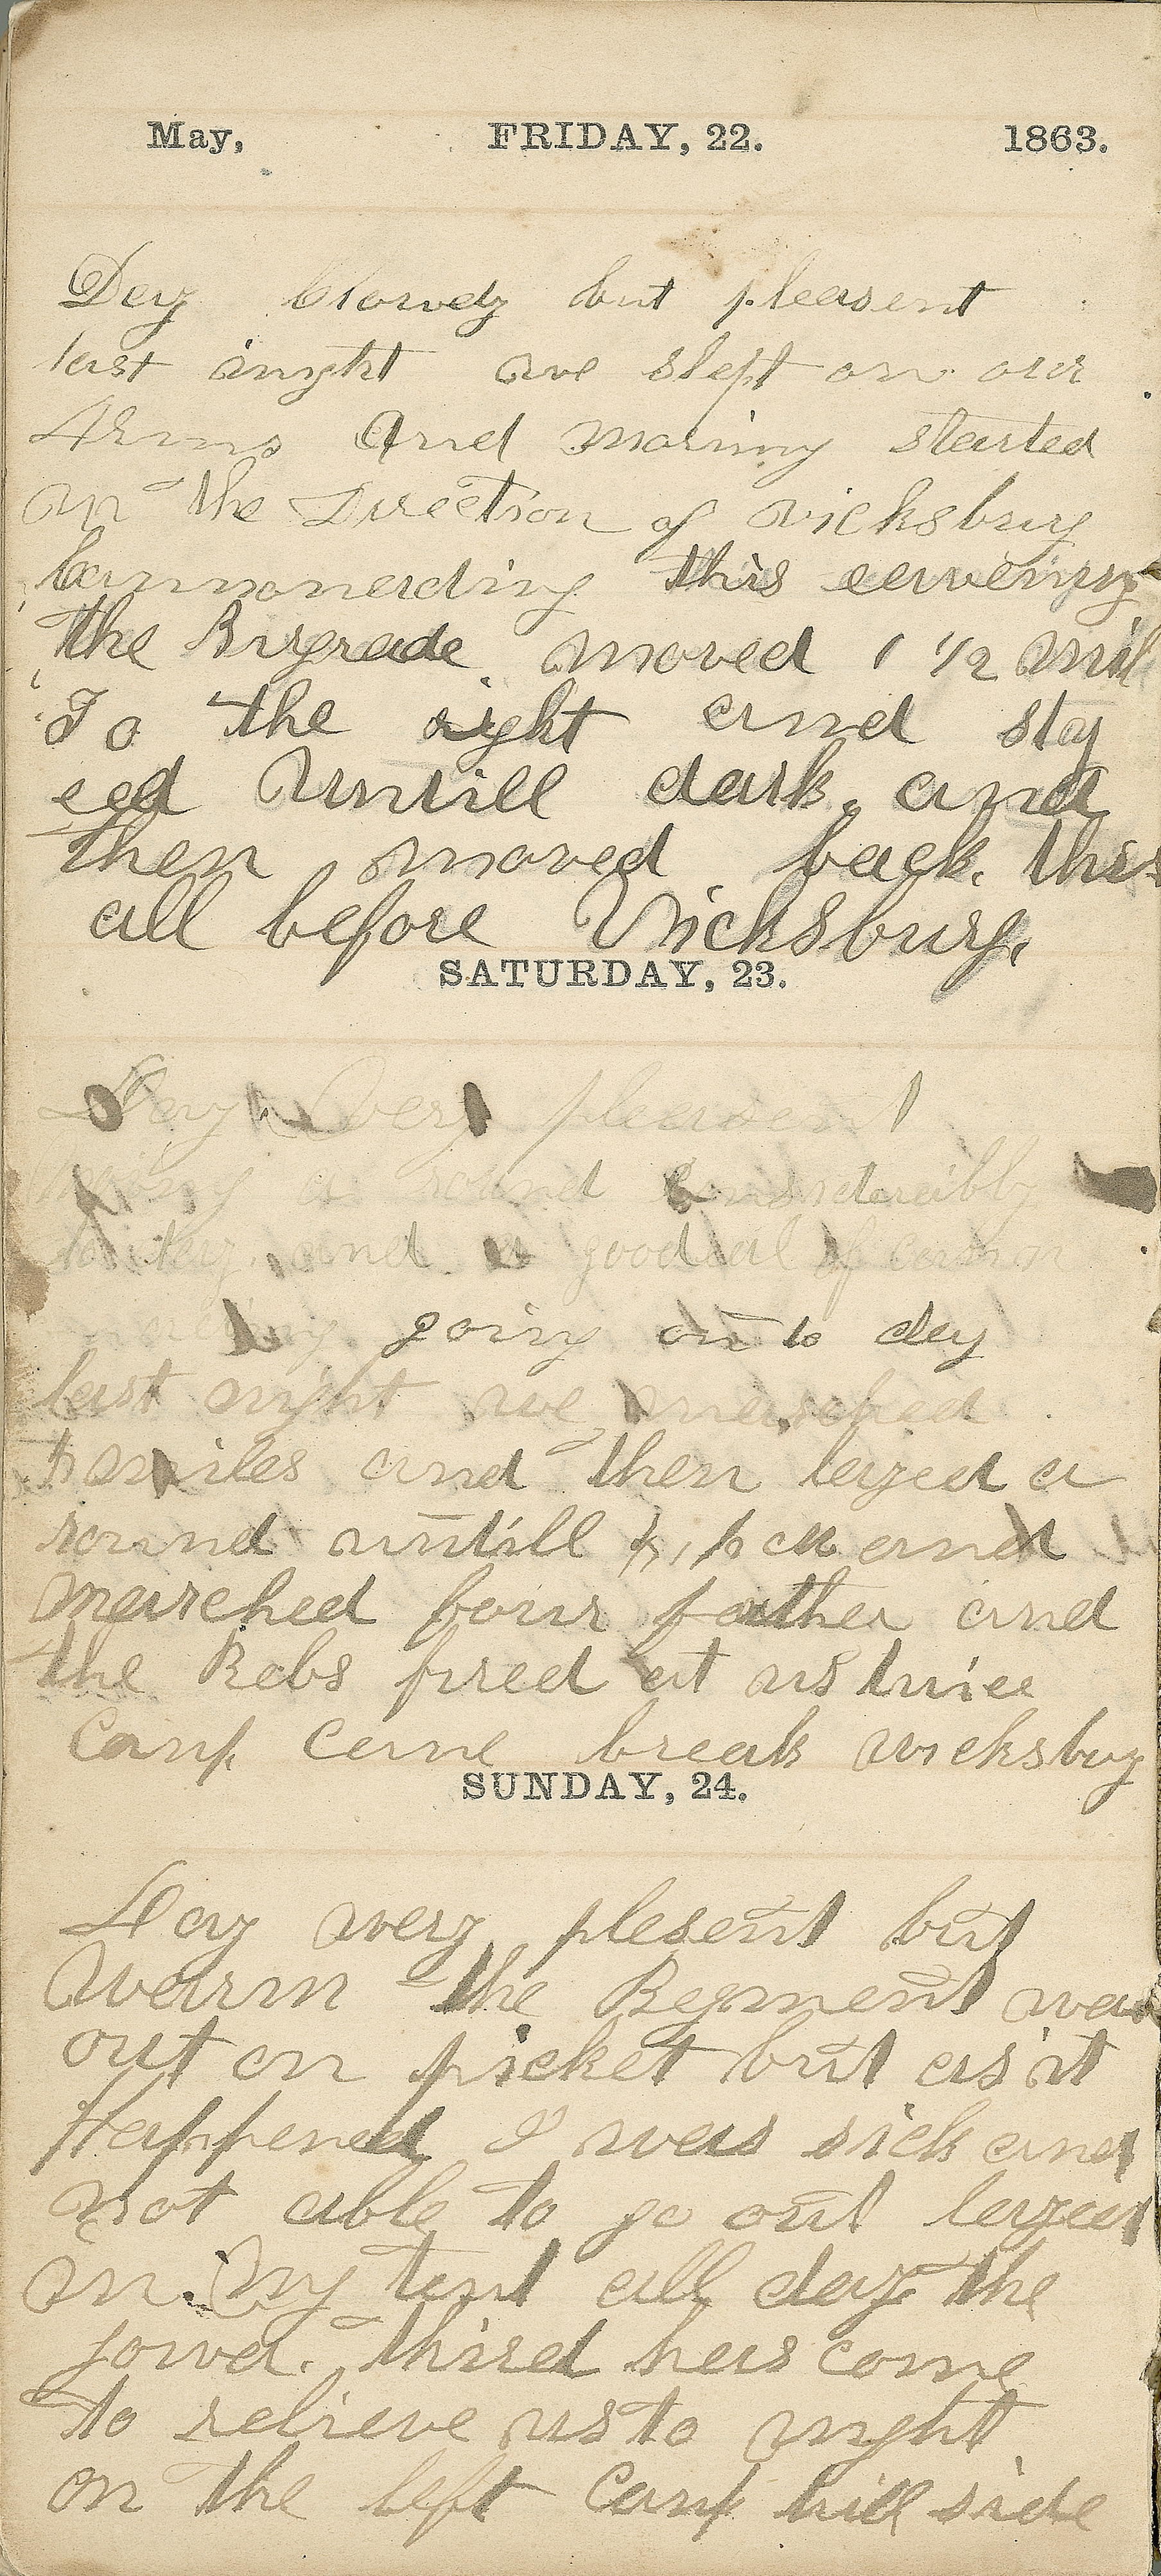 May, FRIDAY, 22. 1863.
Day Clowdy but pleasent
last night we slept on our
Arms And morning started
in the Direction of vicksburg
Cannonading this eavening
the Brigrade moved 1 1/2 mil
To the right and stay
eed untill dark. and
then moved back. this
all before Vicksburg.
SATURDAY, 23.
Day Very pleasent
a round Considerably
to day. and a good eal of cann
going on to day
last night we marched
miles and then layed a
round untill and
marched four farther and
the Rebs fired at us twice
Camp Cane break vicksburg
SUNDAY, 24.
Day very plesent but
Warm the Regment was
out on picket but as it
Happened I was sick and
not able to go out layed
in My tent all day the
Iowa. third has come
to relieve us to night
on the left Camp hill side